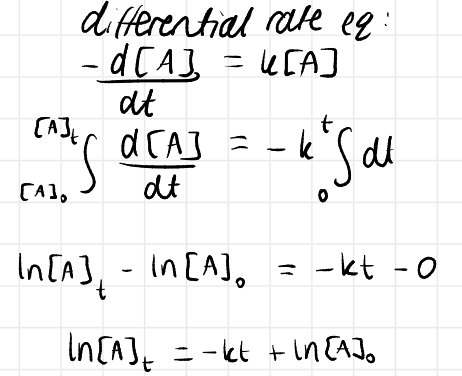 differential rate eq:
-d[A]/dt = k[A]
∫_{[A]₀}^{[A]ₜ} d[A]/dt = -k ∫_0^t dt
ln[A]ₜ - ln[A]₀ = -kt - 0
ln[A]ₜ = -kt + ln[A]₀